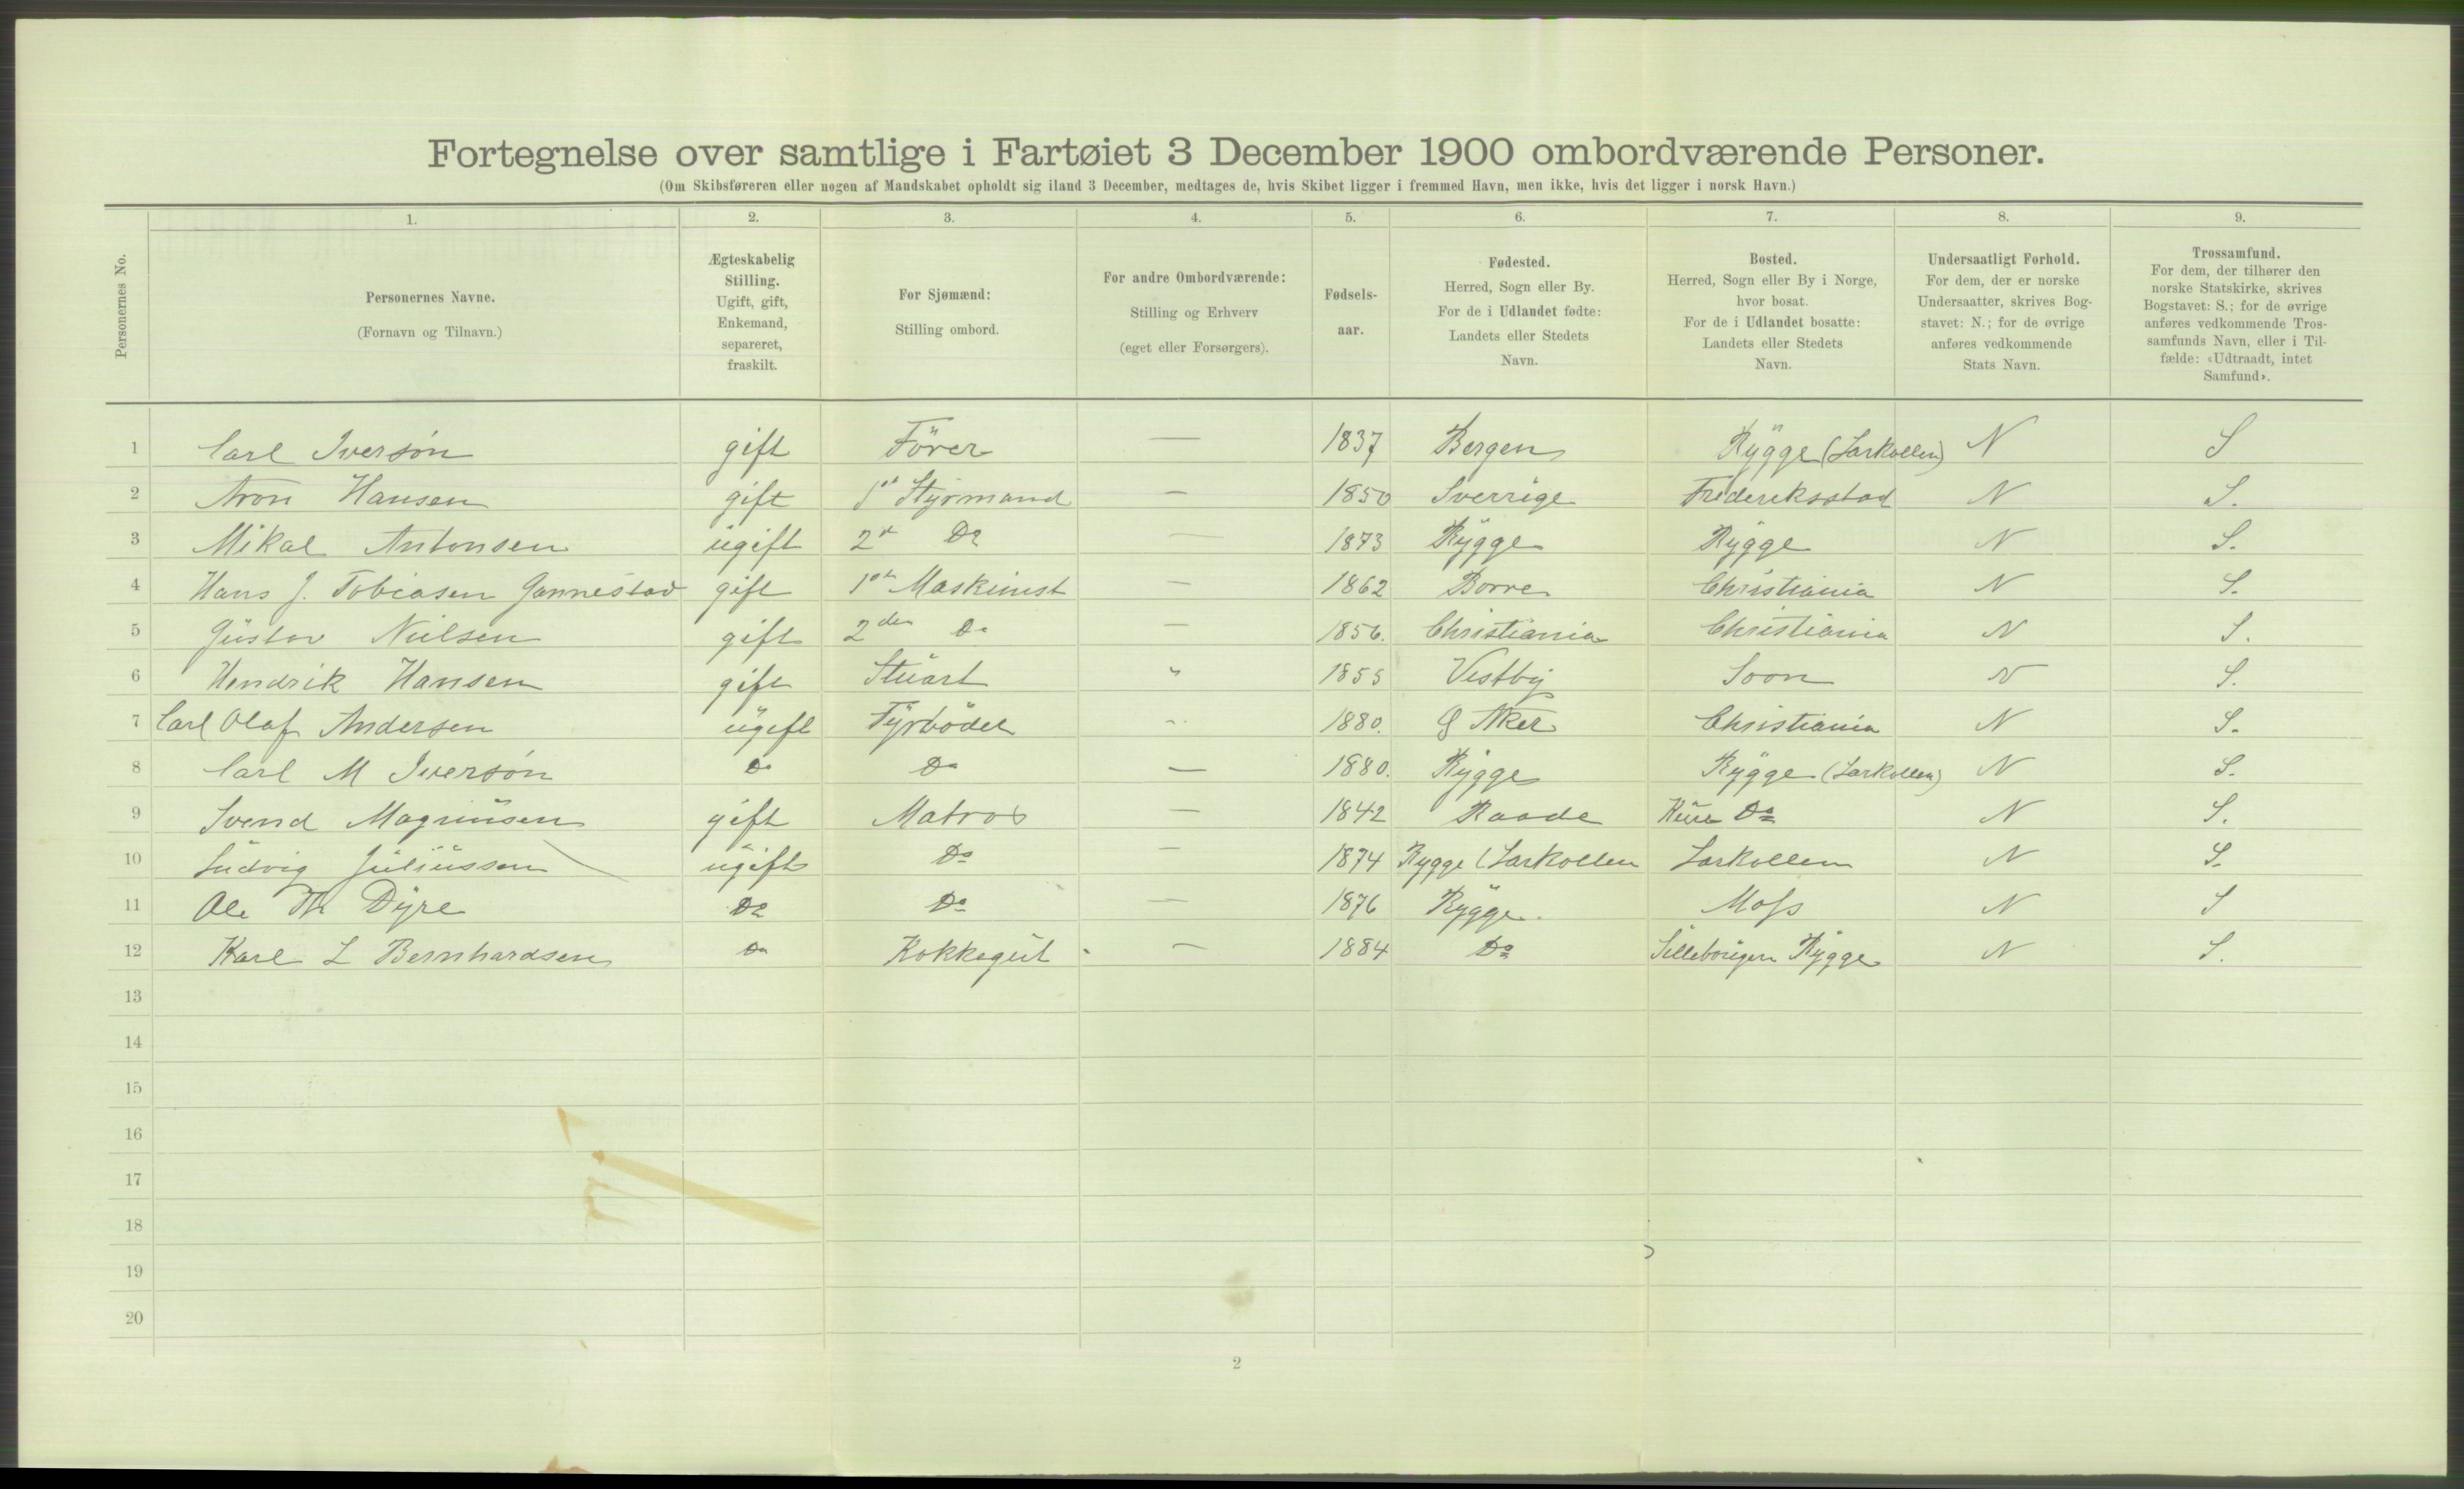 Fortegnelse over samtlige i Fartøiet 3 December 1900 ombordværende Personer.
(Om Skibsføreren eller nogen af Mandskabet opholdt sig iland 3 December, medtages de, hvis Skibet ligger i fremmed Havn, men ikke, hvis det ligger i norsk Havn.)
1. 2. 3. 4. 5. 6. 7. 8. 9.
Personernes No.
Personernes Navne.
(Fornavn og Tilnavn.)
Ægteskabelig
Stilling.
Ugift, gift,
Enkemand,
separeret,
fraskilt.
For Sjømænd:
Stilling ombord.
For andre Ombordværende:
Stilling og Erhverv
(eget eller Forsørgers).
Fødsels-
aar.
Fødested.
Herred, Sogn eller By.
For de i Udlandet fødte:
Landets eller Stedets
Navn.
Bosted.
Herred, Sogn eller By i Norge,
hvor bosat.
For de i Udlandet bosatte:
Landets eller Stedets
Navn.
Undersaatligt Forhold.
For dem, der er norske
Undersaatter, skrives Bog-
stavet: N.; for de øvrige
anføres vedkommende
Stats Navn.
Trossamfund.
For dem, der tilhører den
norske Statskirke, skrives
Bogstavet: S.; for de øvrige
anføres vedkommende Tros-
samfunds Navn, eller i Til-
fælde: «Udtraadt, intet
Samfund».
1 Carl Iversön gift Förer — 1837 Bergen Rygge (Larkollen) N S
2 Aron Hansen gift 1st Styrmand — 1850 Sverrige Frederiksstad N S.
3 Mikal Antonsen ugift 2d Do — 1873 Rygge Rygge N S.
4 Hans J. Tobiasen Gannestad gift 1ste Maskinist — 1862 Borre Christiania N S.
5 Gustav Nielsen gift 2den Do — 1856. Christiania Christiania N S.
6 Hendrik Hansen gift Stuart " 1855 Vestby Soon N S.
7 Carl Olaf Andersen ugift Fyrböder " 1880. Aker Christiania N S.
8 Carl M Iversön Do Do — 1880. Rygge Rygge (Larkollen) N S.
9 Svend Magnusen gift Matros — 1842 Raade Do N S.
10 Ludvig Juliussen ugift Do — 1874 Rygge (Larkollen Larkollen N S.
11 Ole Th Dyre Do Do — 1876 Rygge. Moss N S
12 Karl L Bernhardsen Do Kokkegut — 1884 Do Rygge N S.
13
14
15
16
17
18
19
20
2